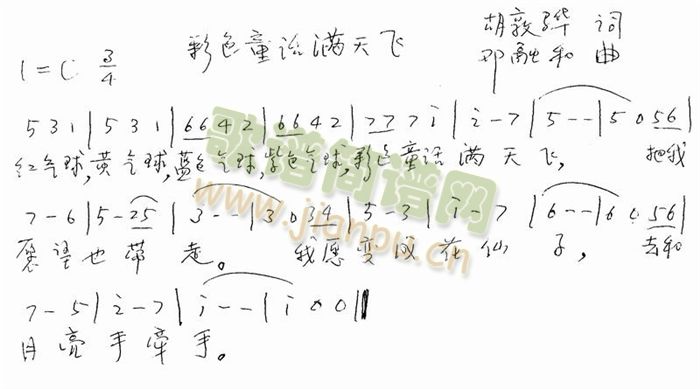 彩色童话满天飞
胡敦骅 词
1=C 3/4
邓融和 曲
5 3 1 | 5 3 1 | 6 6 4 2 | 6 6 4 2 | 7 7 7 i | i - 7 | 5 - - | 5 0 5 6 |
红气球,黄气球,蓝色气球,紫色气球,彩色童话满天飞, 把我
7 - 6 | 5 - 2 5 | 3 - - | 3 0 3 4 | 5 - 3 | i - 7 | 6 - - | 6 0 5 6 |
愿望也带走。 我愿变成花仙子, 去和
7 - 5 | i - 7 | i - - | i 0 0 ||
月亮手牵手。
歌谱简谱网
www.jianpu.cn